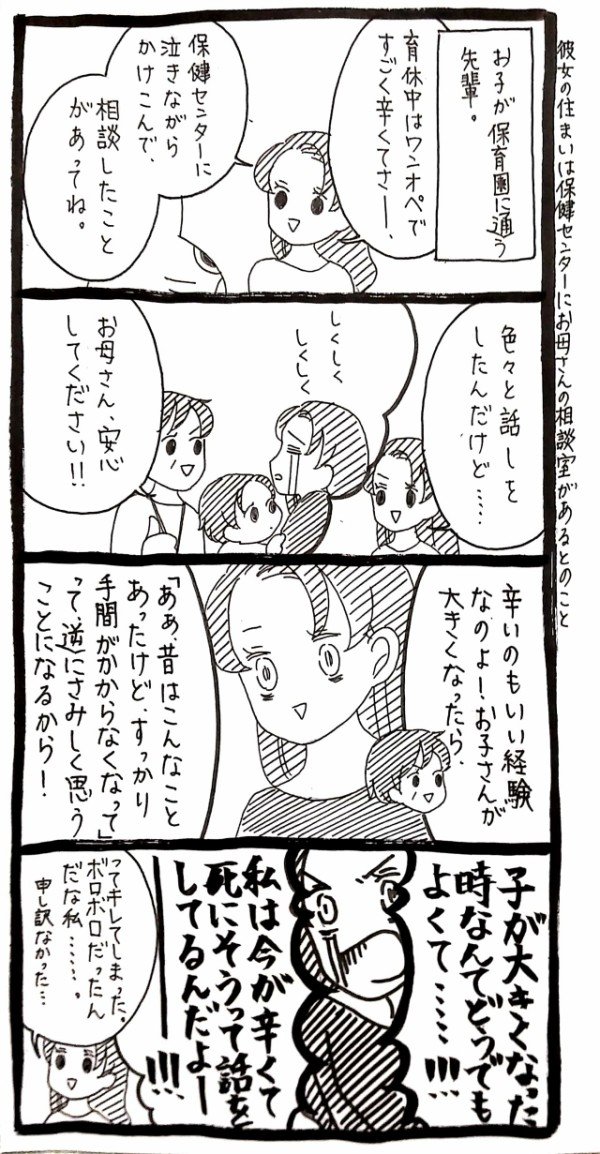 彼女の住まいは保健センターにお母さんの相談室があるとのこと
お子が保育園に通う
先輩。
育休中はワンオペで
すごく辛くてさーー、
保健センターに
泣きながら
かけこんで、
相談したこと
があってね。
色々と話しを
したんだけど……
しくしく
しくしく
お母さん、安心
してください!!
辛いのもいい経験
なのよ!お子さんが
大きくなったら、
「あぁ、昔はこんなこと
あったけど、すっかり
手間がかからなくなって」
って逆にさみしく思う
ことになるから!
子が大きくなった
時なんてどうでも
よくて……!!!
私は今が辛くて
死にそうって話を
してるんだよー
ーー!!!
ってキレてしまった。
ボロボロだったん
だな私……。
申し訳なかった…